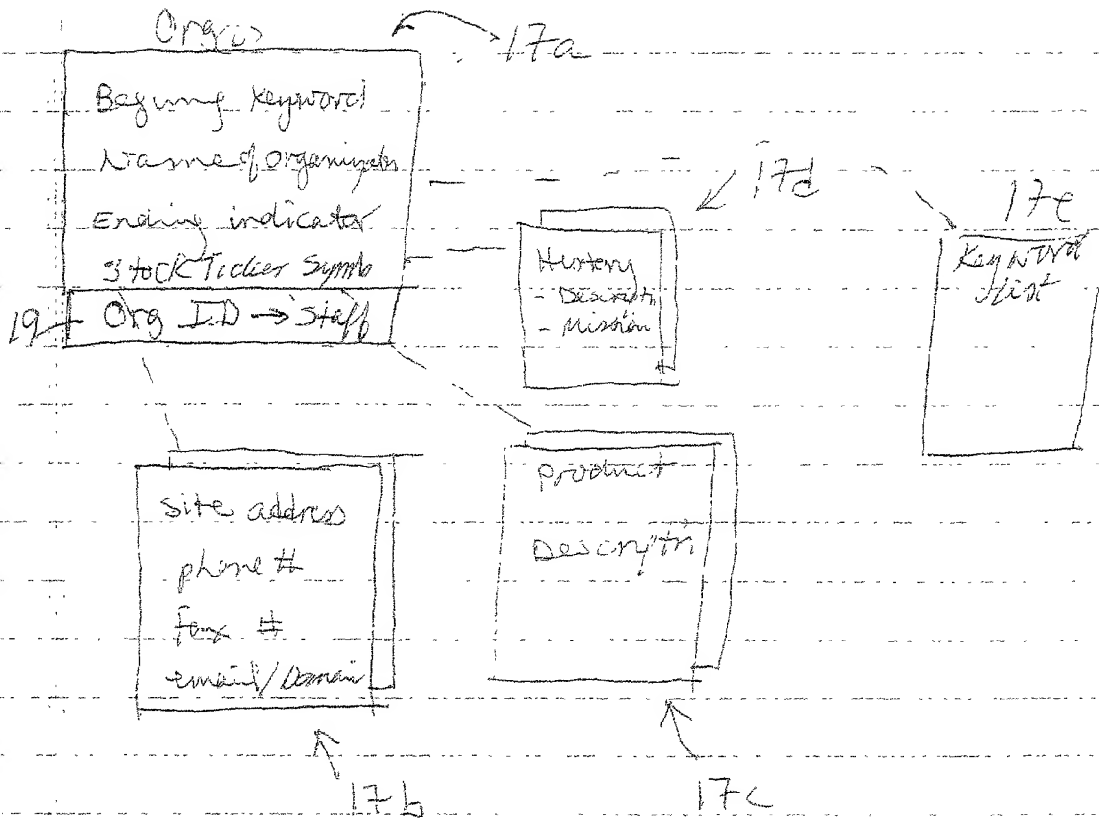 Orgs
17a
Begining Keyword
Name of Organization
Ending indicator
Stock Ticker Symb
19
Org I.D → Staff
17d
History
- Descriptn
- Mission
17e
Keyword
List
site address
phone #
fax #
email/Domain
17b
product
Descriptn
17c